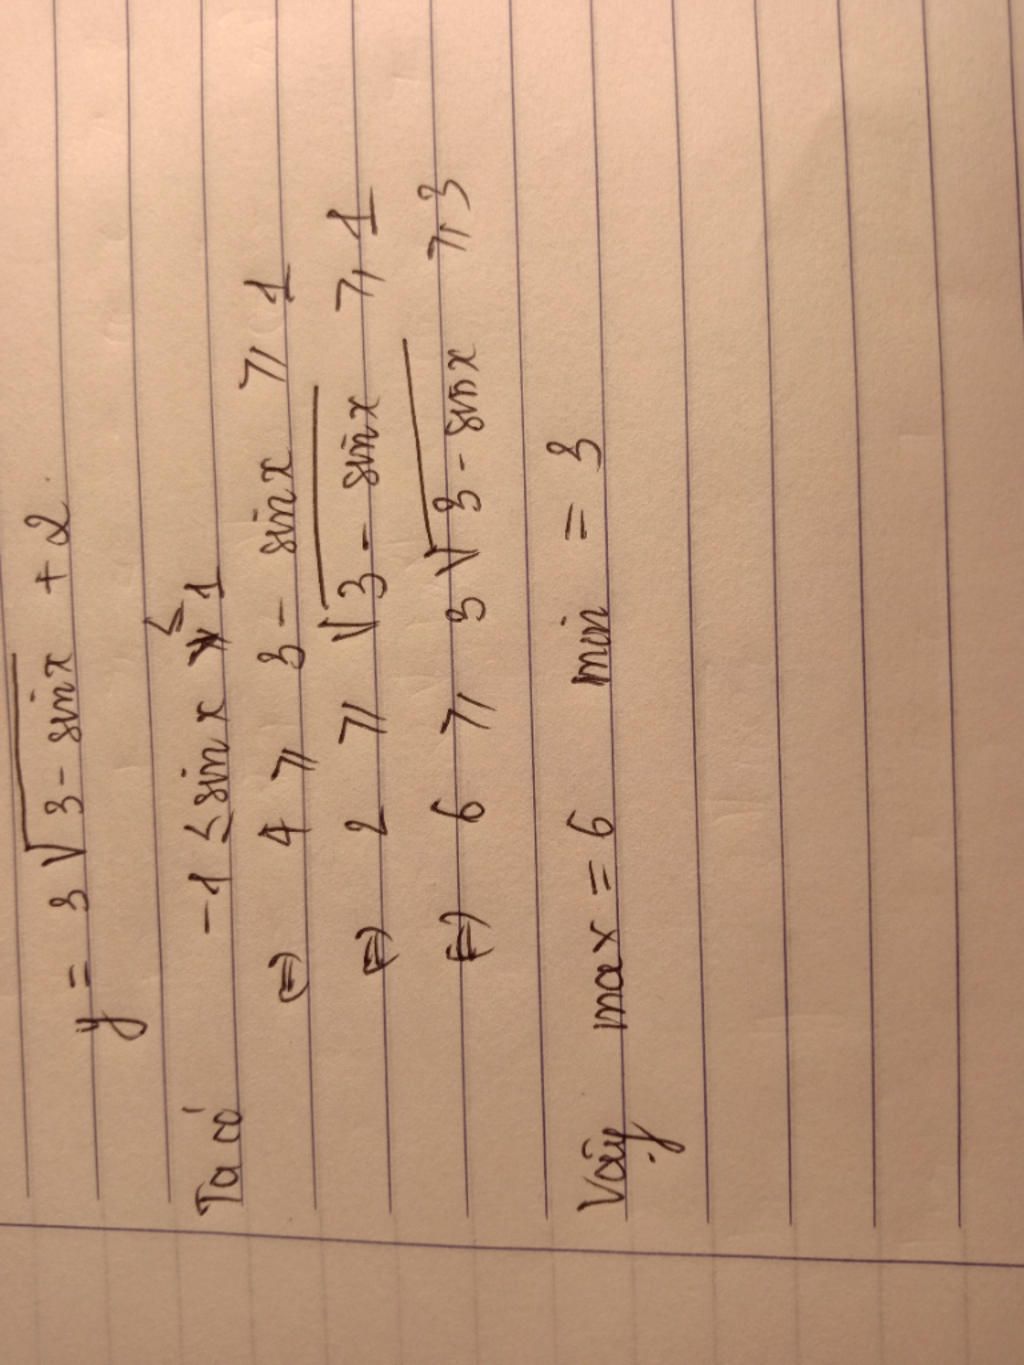 y = 3√(3 - sin x) + 2
Ta có -1 ≤ sin x ≤ 1
(=) 4 ≥ 3 - sin x ≥ 1
(=) 2 ≥ √(3 - sin x) ≥ 1
(=) 6 ≥ 3√(3 - sin x) ≥ 3
Vậy max = 6 min = 3